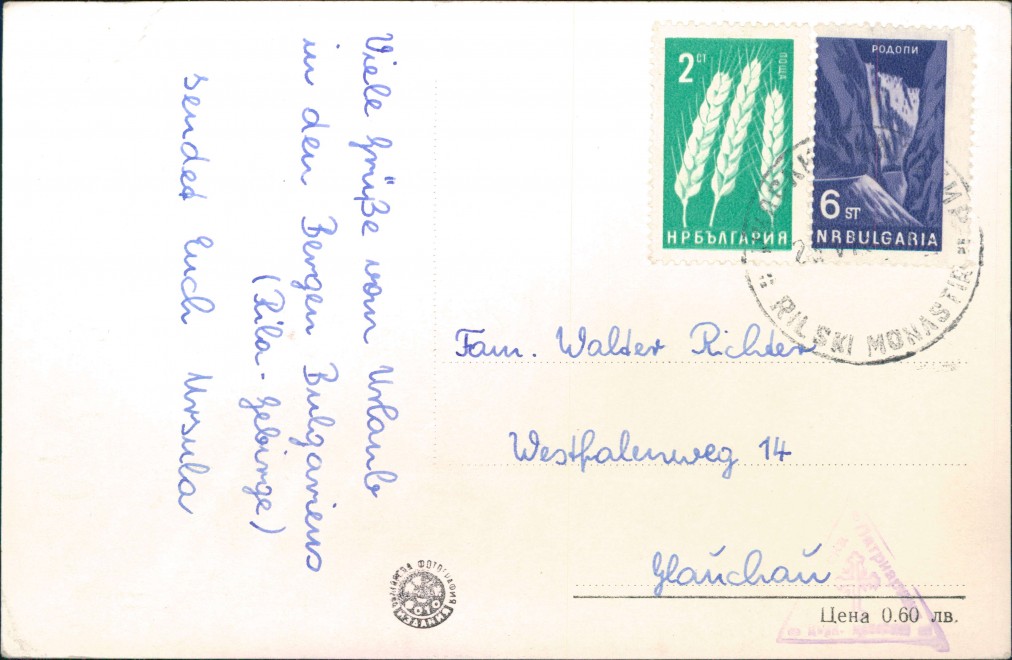 Viele Grüße vom Urlaub
in den Bergen Bulgariens
(Rila-Gebirge)
sendet Euch Ursula
2 СТ
ПОЩА
НРБЪЛГАРИЯ
РОДОПИ
6 ST
NRBULGARIA
RILSKI MONASTIR
Fam. Walter Richter
Westfalenweg 14
Glauchau
ФОТОГРАФИЯ
ФОТО
ИЗДАНИЯ
Цена 0.60 лв.